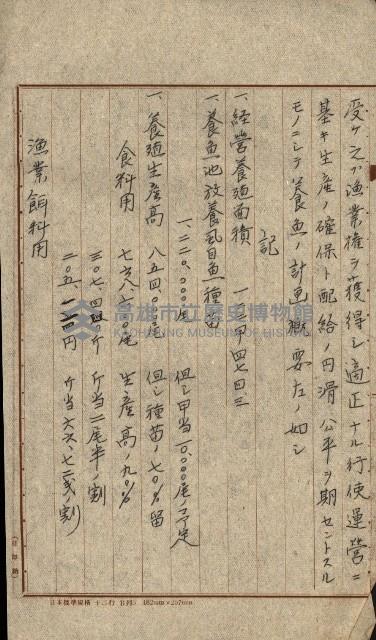 受ケ之ガ漁業権ヲ獲得シ適正ナル行使運営ニ
基キ生産ノ確保ト配給ノ円滑公平ヲ期セントスル
モノニシテ養魚ノ計画概要左ノ如シ
記
一、経営養殖面積 一二二甲四七四三
一、養魚池放養虱目魚種苗
一、二二〇、〇〇〇尾 但シ甲当一〇、〇〇〇尾ノ予定
一、養殖生産高 八五四、〇〇〇尾 但シ種苗ノ七〇%留
食料用 七六八、六〇〇尾 生産高ノ九〇%
三〇七、四四〇斤 斤当二尾半ノ割
二〇五、一二四円 斤当六六、七二銭ノ割
漁業餌料用
高雄市立歷史博物館
KAOHSIUNG MUSEUM OF HISTORY
日本標準規格 十二行 B列5 182mm×257mm